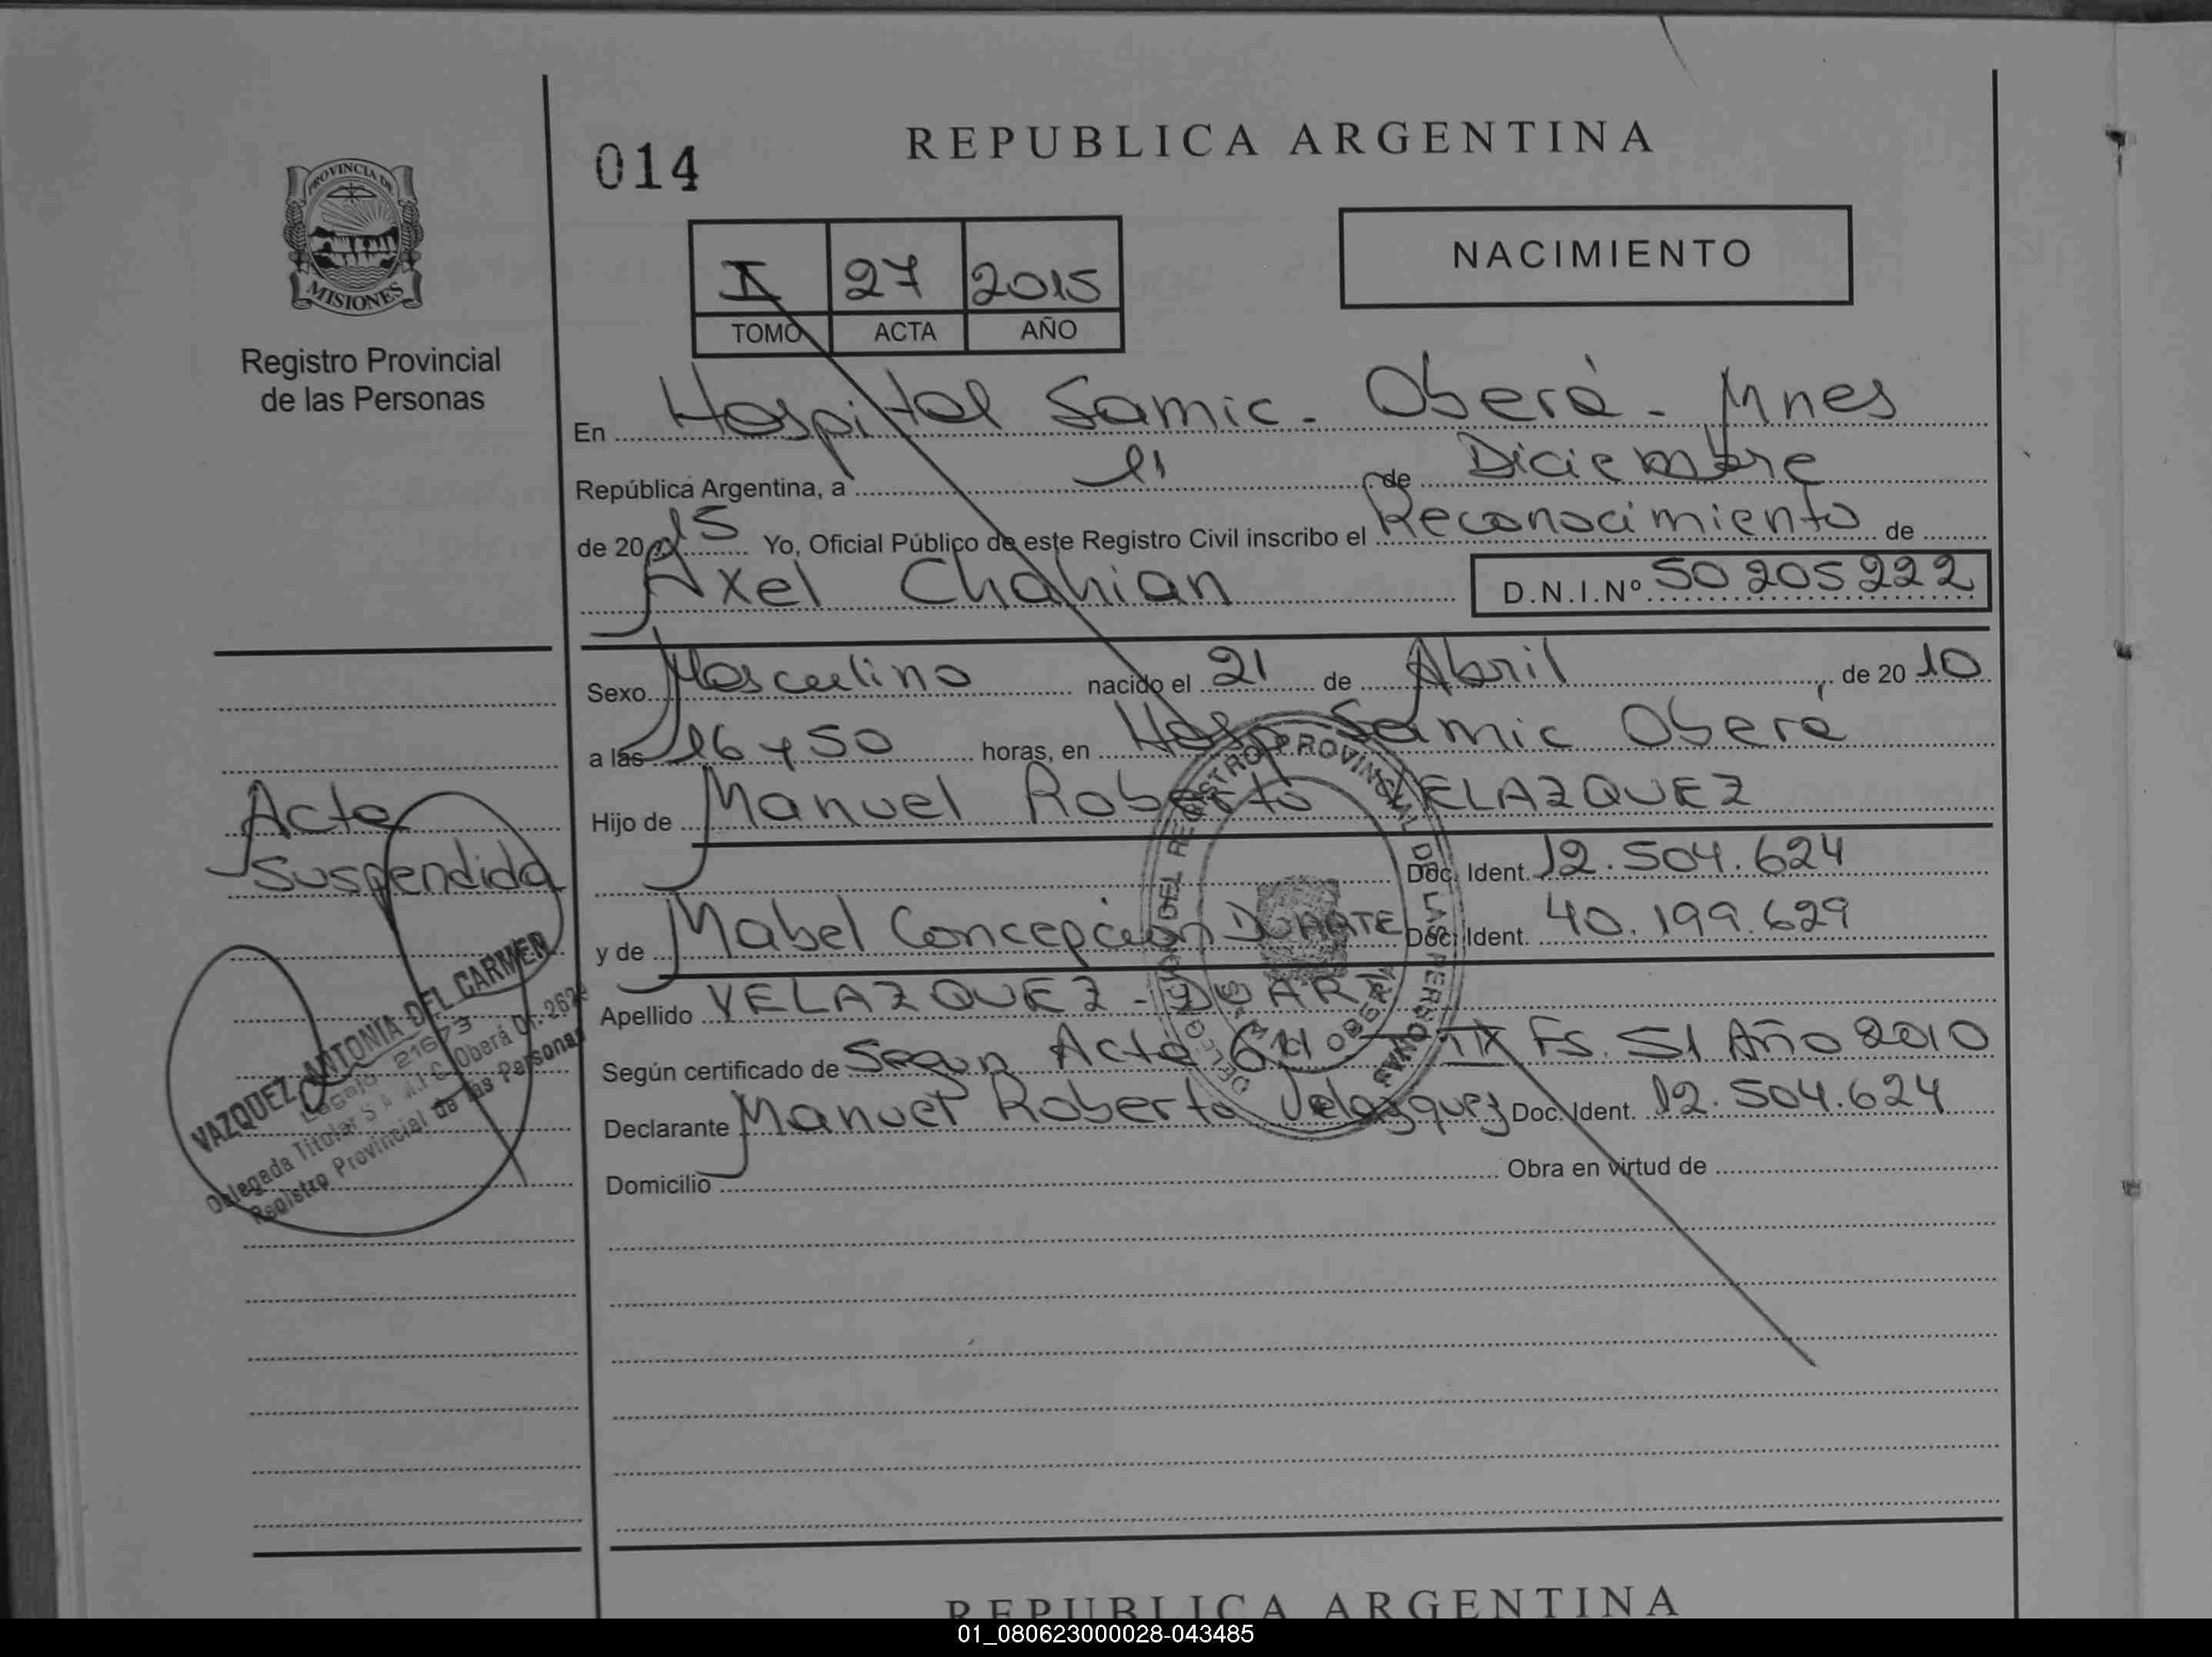 014
REPUBLICA ARGENTINA
PROVINCIA DE
MISIONES
Registro Provincial
de las Personas
I 27 2015
TOMO ACTA AÑO
NACIMIENTO
En Hospital Samic - Oberá - Mnes
República Argentina, a 11 de Diciembre
de 20 15 Yo, Oficial Público de este Registro Civil inscribo el Reconocimiento de
Axel Chahian D.N.I.Nº 50205222
Sexo Masculino nacido el 21 de Abril, de 20 10
a las 16 y 50 horas, en Hosp Samic Oberá
Hijo de Manuel Roberto VELAZQUEZ
Doc. Ident. 12.504.624
y de Mabel Concepcion DUARTE Doc. Ident. 40.199.629
Apellido VELAZQUEZ - DUARTE
Según certificado de Segun Acta Fs. 51 Año 2010
Declarante Manuel Roberto Velazquez Doc. Ident. 12.504.624
Domicilio Obra en virtud de
Acta
Suspendida
VAZQUEZ ANTONIA DEL CARMEN
Legajo 21673
Delegada Titular S.A.M.I.C. Oberá Of.
Registro Provincial de las Personas
DEL REGISTRO PROVINCIAL DE LAS PERSONAS
REPUBLICA ARGENTINA
01_080623000028-043485